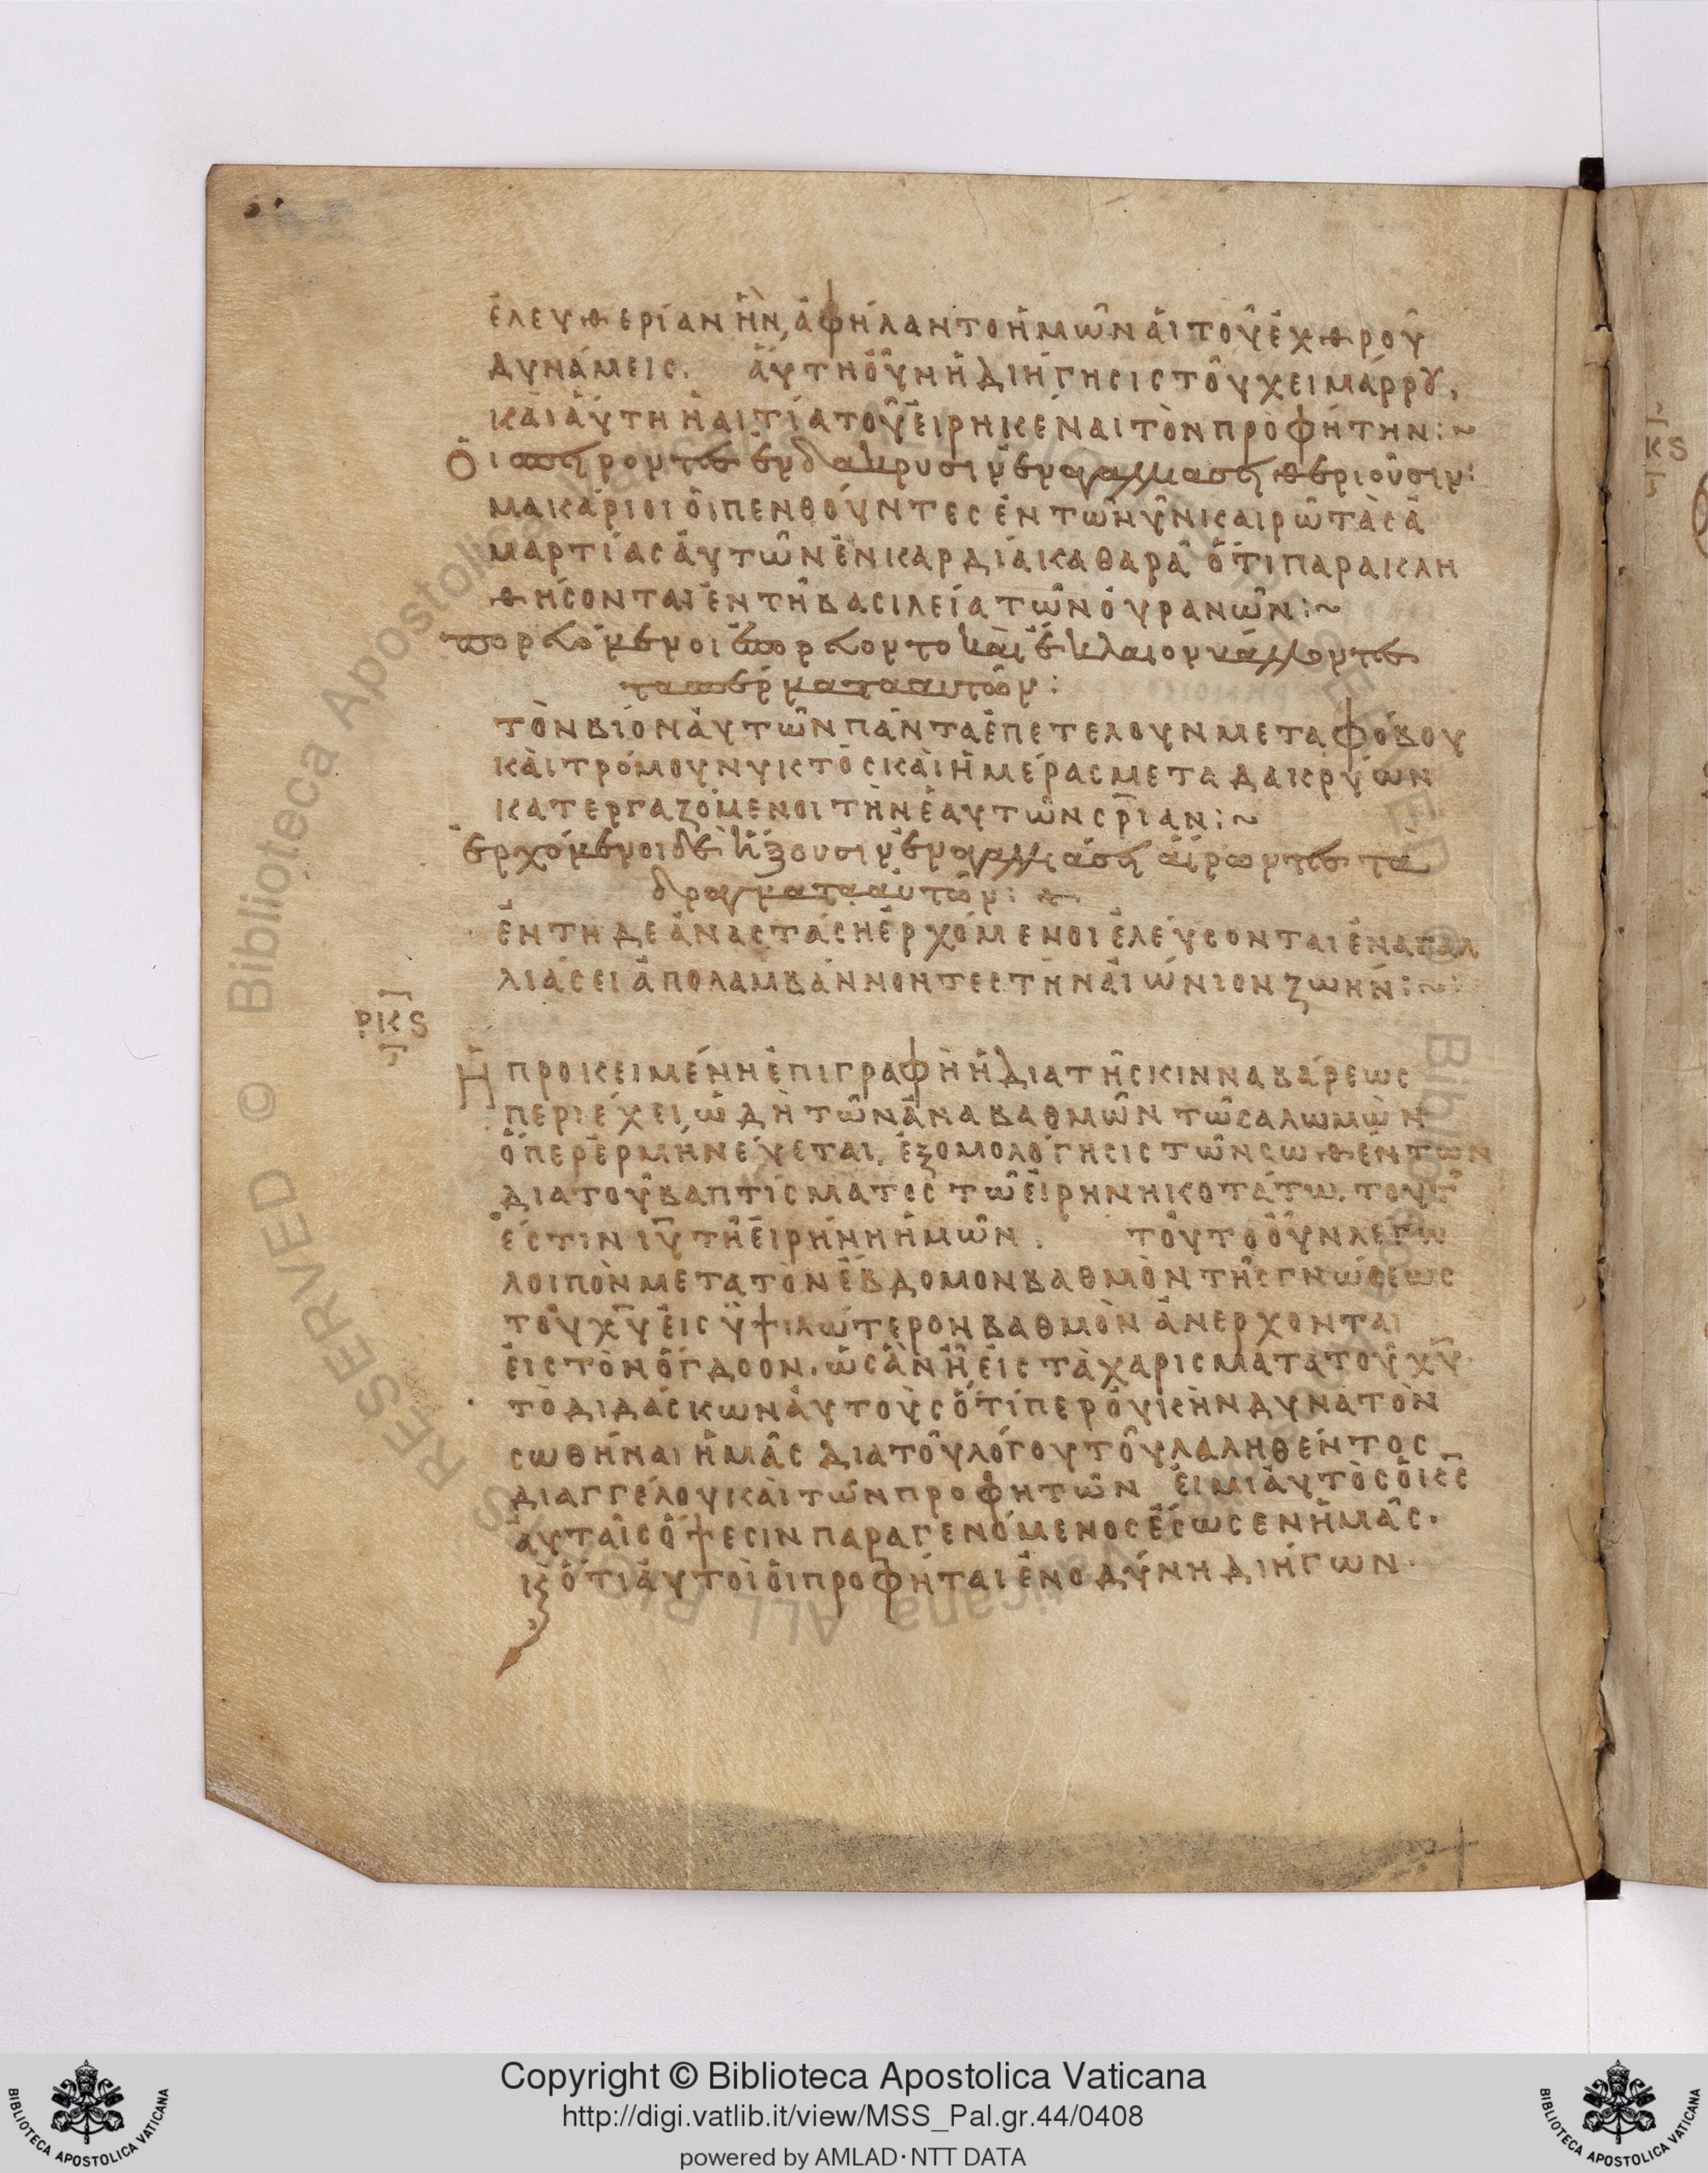 ἐλευθερίαν ἣν, ἀφήλαντο ἡμῶν ἁι τοῦ ἐχθροῦ
δυνάμεις. ἅυτη ὁῦν ἡ διήγησις τοῦ χειμάρρου,
κὰι ἅυτη ἡ αιτία τοῦ ἐιρηκέναι τὸν πρὸφήτην :~
Ὁι σπείροντες ἐν δακρυσιν ἐν αγαλλιασει θεριοῦσιν:
μακάριοι ὁι πενθούντες ἐν τῶ νῦνι καιρῶ τὰς ἁ
μαρτίας ἁυτῶν ἐν καρδία καθαρᾶ ὅτι παρακλη
θήσονται ἐν τῆ βασιλεία τῶν ὀυρανῶν :~
πορευόμενοι ἐπορευοντο κὰι ἔκλαιον βάλλοντες
τα σπέρματα αυτῶν:
τὸν βίον ἁυτῶν πάντα ἐπετελουν μετα φόβου
κὰι τρόμου νυκτὸς κὰι ἡμέρας μετα δακρύων
κατεργαζόμενοι τὴν ἑαυτῶν σρίαν :~
ἐρχόμενοι δὲ ἥξουσιν ἐν αγαλλιάσει ἄιρωντες τὰ
δραγματα ἁυτῶν:
ἐν τη δε ἀναστάση ἐρχόμενοι ἐλεύσονται ἐν αγαλ
λιάσει ἀπολαμβάννοντες τὴν ἀιώνιον ζωήν :~
ΡΚϚ
Ἡ προκειμένη ἐπιγραφὴ ἡ διατῆς κινναβάρεως
περιέχει, ὠδὴ τῶν ἀναβαθμῶν τῶ σαλωμὼν
ὅπερ ἑρμηνέυεται, ἐξομολόγησις τῶν σωθέντων
δια τοῦ βαπτίσματος τῶ ἐιρηνηκοτάτω, τουτ
ἐστιν ιυ τῆ ἐιρήνη ἡμῶν. τοῦτο ὁῦν λεγω
λοιπὸν μετα τὸν ἕβδομον βαθμὸν τῆς γνώσεως
τοῦ χυ ἐις ὑψιλώτερον βαθμὸν ἀνερχονται
ἐις τὸν ὄγδοον. ὡς ἀν ἦ ἐις τὰ χαρισματα τοῦ χυ
τὸ διδάσκων ἁυτοὺς ὅτίπερ ὀυκ ὴν δυνατὸν
σωθῆναι ἡμᾶς διατοῦ λόγου τοῦ λαληθέντος
διαγγέλου κὰι τῶν προφητῶν ἐι μὶ ἀυτὸς ὁ κς
ἀυταῖς ὄψεσιν παραγενόμενος ἔσωσεν ἡμᾶς.
κ ὅτι ἀυτοὶ ὁι προφήται ἐν οδύνη διήγων
Copyright © Biblioteca Apostolica Vaticana
http://digi.vatlib.it/view/MSS_Pal.gr.44/0408
powered by AMLAD·NTT DATA